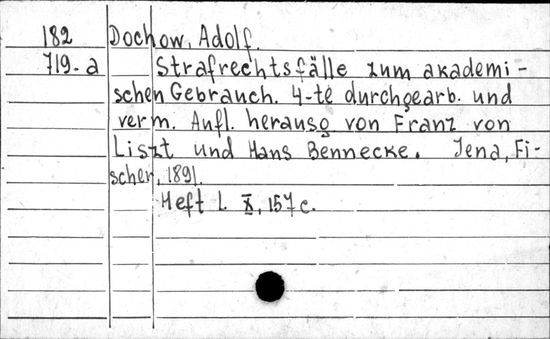 182 Dochow, Adolf.
719-a Strafrechtsfälle zum akademi-
schen Gebrauch. 4-te durchgearb. und
verm. Aufl. herausg von Franz von
Liszt und Hans Bennecke. Jena, Fi-
scher, 1891.
Heft I. X, 157 c.